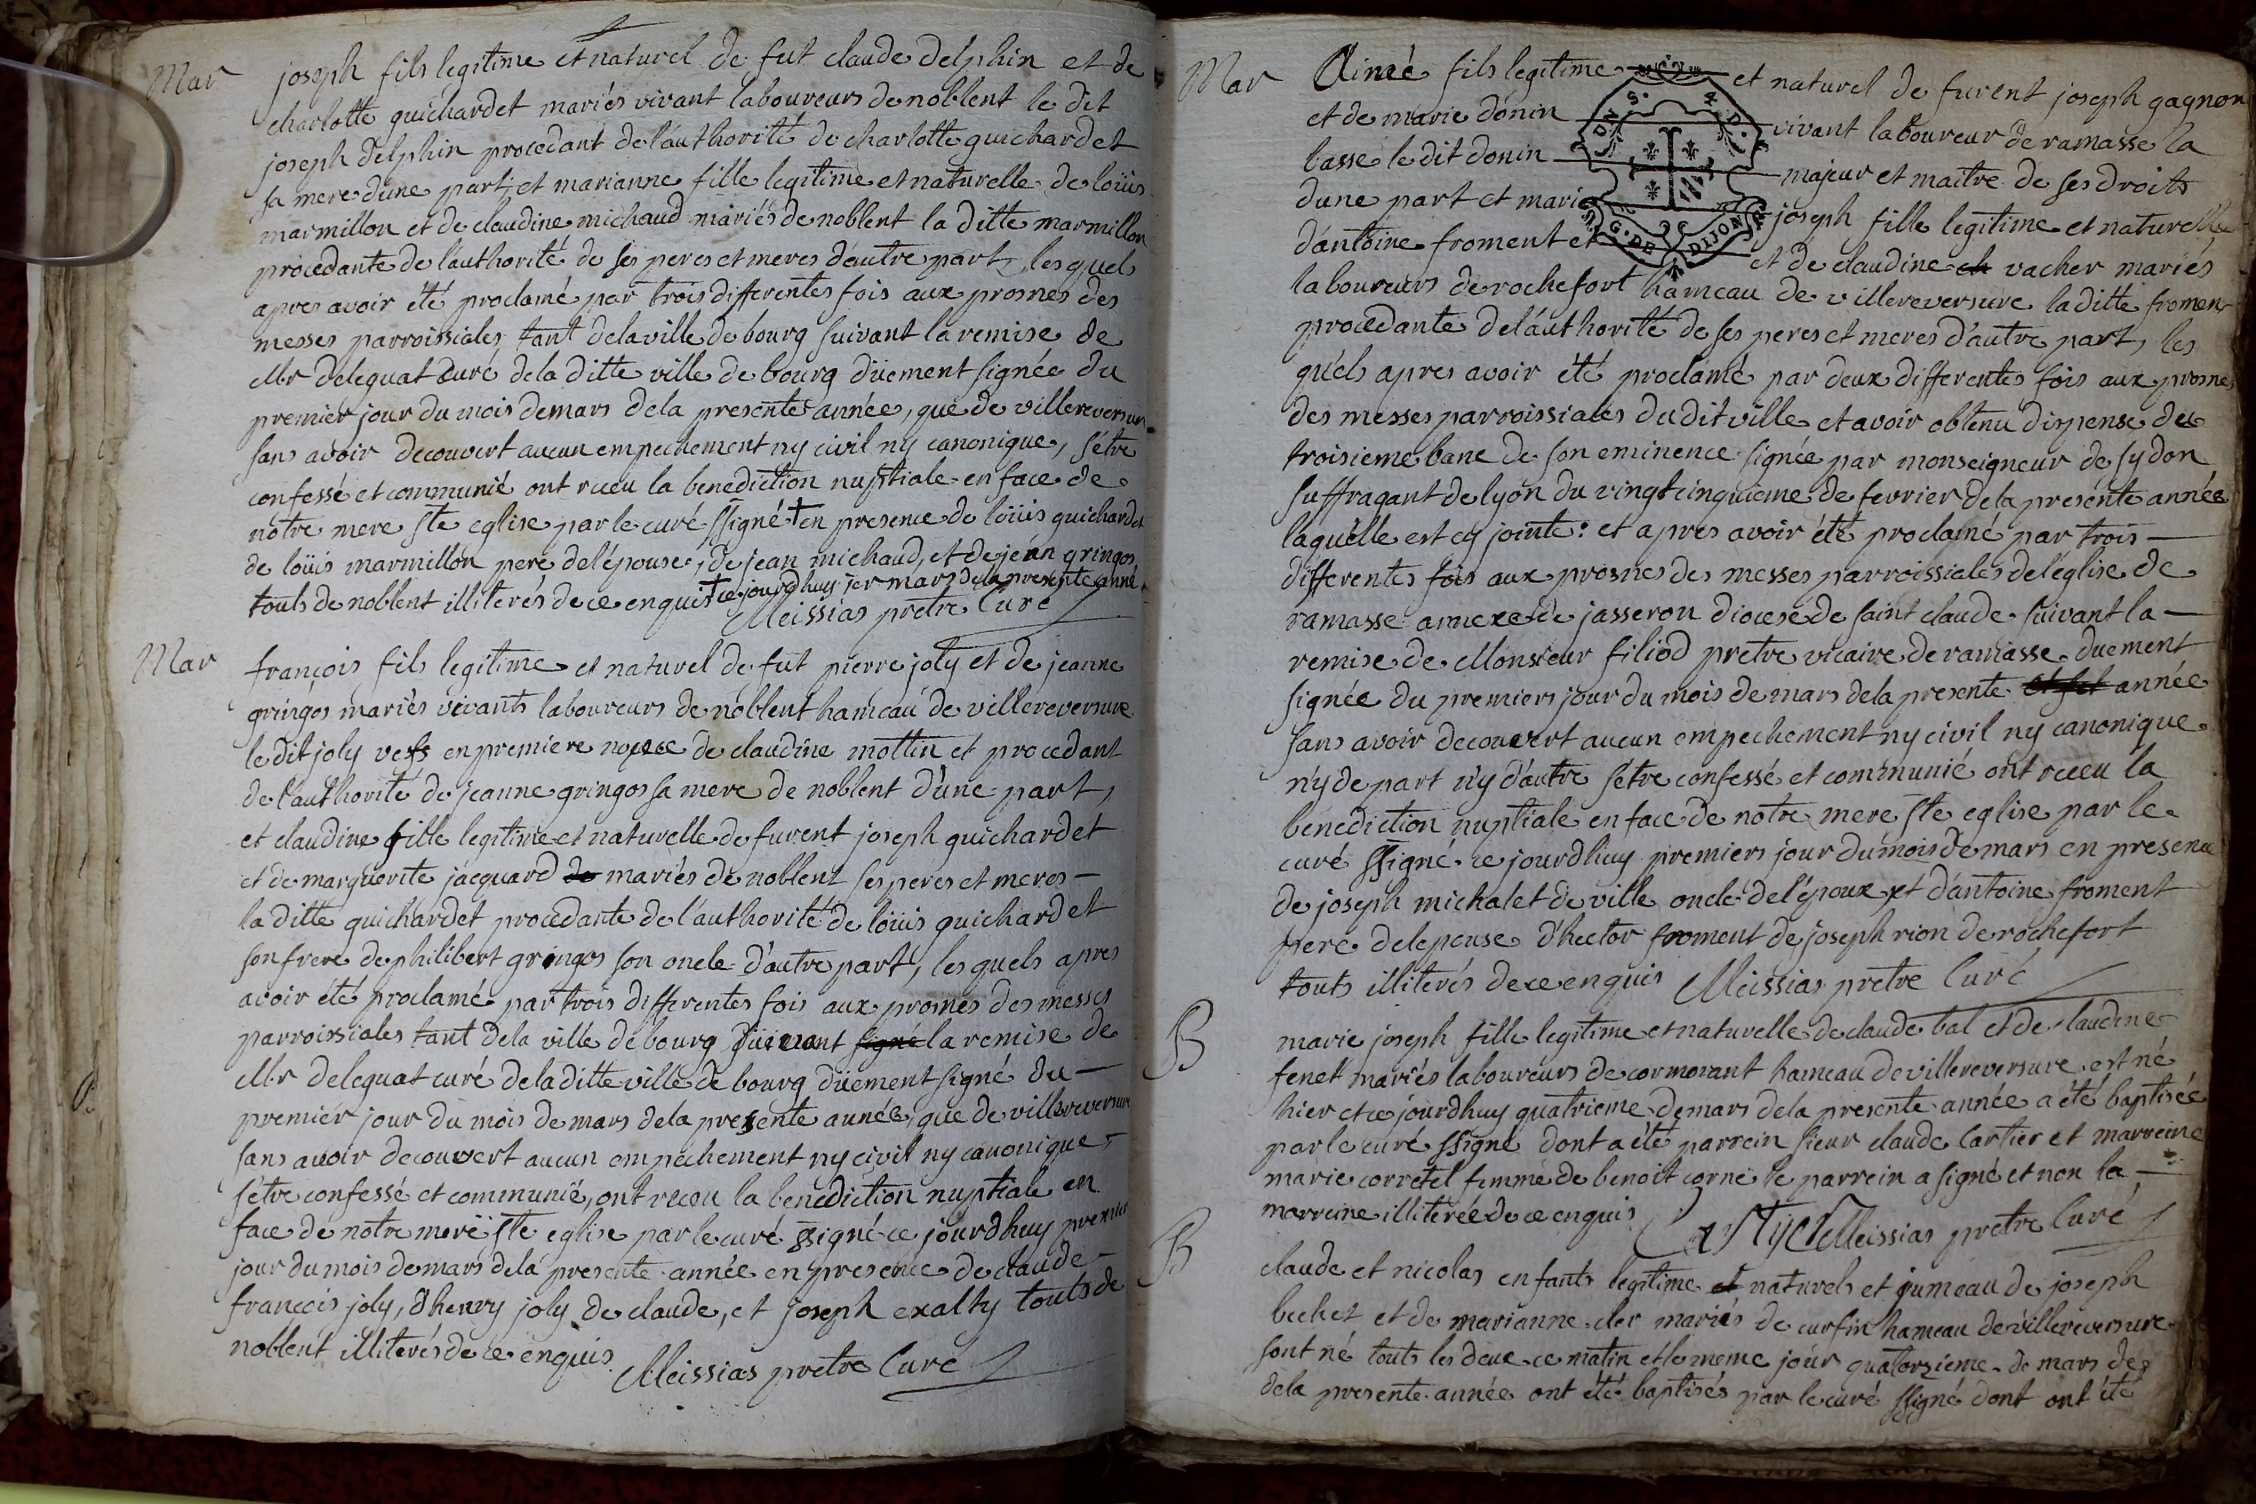 Mar
joseph fils legitime et naturel de fut claude delphin et de
charlotte guichardet mariés vivant laboureurs de noblent le dit
joseph delphin procedant de l'authorité de charlotte guichardet
sa mere d'une part, et marianne fille legitime et naturelle de loüis
marmillon et de claudine michaud mariés de noblent la ditte marmillon
procedante de l'authorité de ses peres et meres d'autre part, les quels
apres avoir été proclamé par trois differentes fois aux prosnes des
messes parroissiales tant dela ville de bourg suivant la remise de
Mr deleguat curé dela ditte ville de bourg düement signée du
premier jour du mois de mars dela presente année, que de villereversure
sans avoir decouvert aucun empechement ny civil ny canonique, s'étre
confessé et communié ont receu la benediction nuptiale en face de
notre mere ste eglise par le curé ssigné † en presence de loüis guichardet
de loüis marmillon pere de l'épouse, de jean michaud, et de jean gringos
touts de noblent illiterés de ce enquis † ce jourdhuy 1er mars dela presente année
Meissias pretre Curé
Mar
françois fils legitime et naturel de fut pierre joly et de jeanne
gringos mariés vivants laboureurs de noblent hameau de villereversure
le dit joly vefs en premiere nopce de claudine mottin et procedant
de l'authorité de jeanne gringos sa mere de noblent d'une part,
et claudine fille legitime et naturelle de furent joseph guichardet
et de marguerite jacquard de mariés de noblent ses peres et meres
la ditte guichardet procedante de l'authorité de loüis guichardet
son frere de philibert gringos son oncle d'autre part, les quels apres
avoir été proclamé par trois differentes fois aux prosnes des messes
parroissiales tant dela ville de bourg suivant signé la remise de
Mr deleguat curé dela ditte ville de bourg düement signé du
premier jour du mois de mars dela presente année, que de villereversure
sans avoir decouvert aucun empechement ny civil ny canonique
s'étre confessé et communié, ont receu la benediction nuptiale en
face de notre mere ste eglise par le curé ssigné ce jourdhuy premier
jour du mois de mars dela presente année en presence de claude
françois joly, d'henry joly de claude, et joseph exalty touts de
noblent illiterés de ce enquis
Meissias pretre Curé
Mar
Aimé fils legitime et naturel de furent joseph gagnon
et de marie donin vivant laboureur de ramasse la
basse le dit donin majeur et maitre de ses droits
d'une part et marie joseph fille legitime et naturelle
d'antoine froment et et de claudine ch vacher mariés
laboureurs de rochefort hameau de villereversure la ditte froment
procedante de l'authorité de ses peres et meres d'autre part, les
quels apres avoir été proclamé par deux differentes fois aux prosnes
des messes parroissiales du dit ville et avoir obtenu dispense de
troisieme banc de son eminence signée par monseigneur de sydon
suffragant de lyon du vingt cinquieme de fevrier dela presente année
laquelle est cy jointe : et apres avoir été proclamé par trois
differentes fois aux prosnes des messes parroissiales de l'église de
ramasse annexe de jasseron diocese de saint claude suivant la
remise de Monsieur filiod pretre vicaire de ramasse duement
signée du premiers jour du mois de mars dela presente année
sans avoir decouvert aucun empechement ny civil ny canonique
n'y de part n'y d'autre s'étre confessé et communié ont receu la
benediction nuptiale en face de notre mere ste eglise par le
curé ssigné ce jourdhuy premiers jour du mois de mars en presence
de joseph michalet de ville oncle de l'époux et d'antoine froment
pere de lepouse d'hector froment de joseph rion de rochefort
touts illiterés de ce enquis Meissias pretre Curé
B
marie joseph fille legitime et naturelle de claude bal et de claudine
fenet mariés laboureurs de cormorant hameau de villereversure est né
hier et ce jourdhuy quatrieme de mars dela presente année a été baptisée
par le curé ssigné dont a été parrein sieur claude Cartier et marreine
marie corretel femme de benoit corne le parrein a signé et non la
marreine illiterée de ce enquis Meissias pretre Curé
B
claude et nicolas enfants legitime et naturels et jumeau de joseph
bechet et de marianne cler mariés de curfin hameau de villereversure
sont né touts les deux ce matin et le meme jour quatorzieme de mars de
dela presente année ont été baptisés par le curé ssigné dont ont été
G. DE DIJON